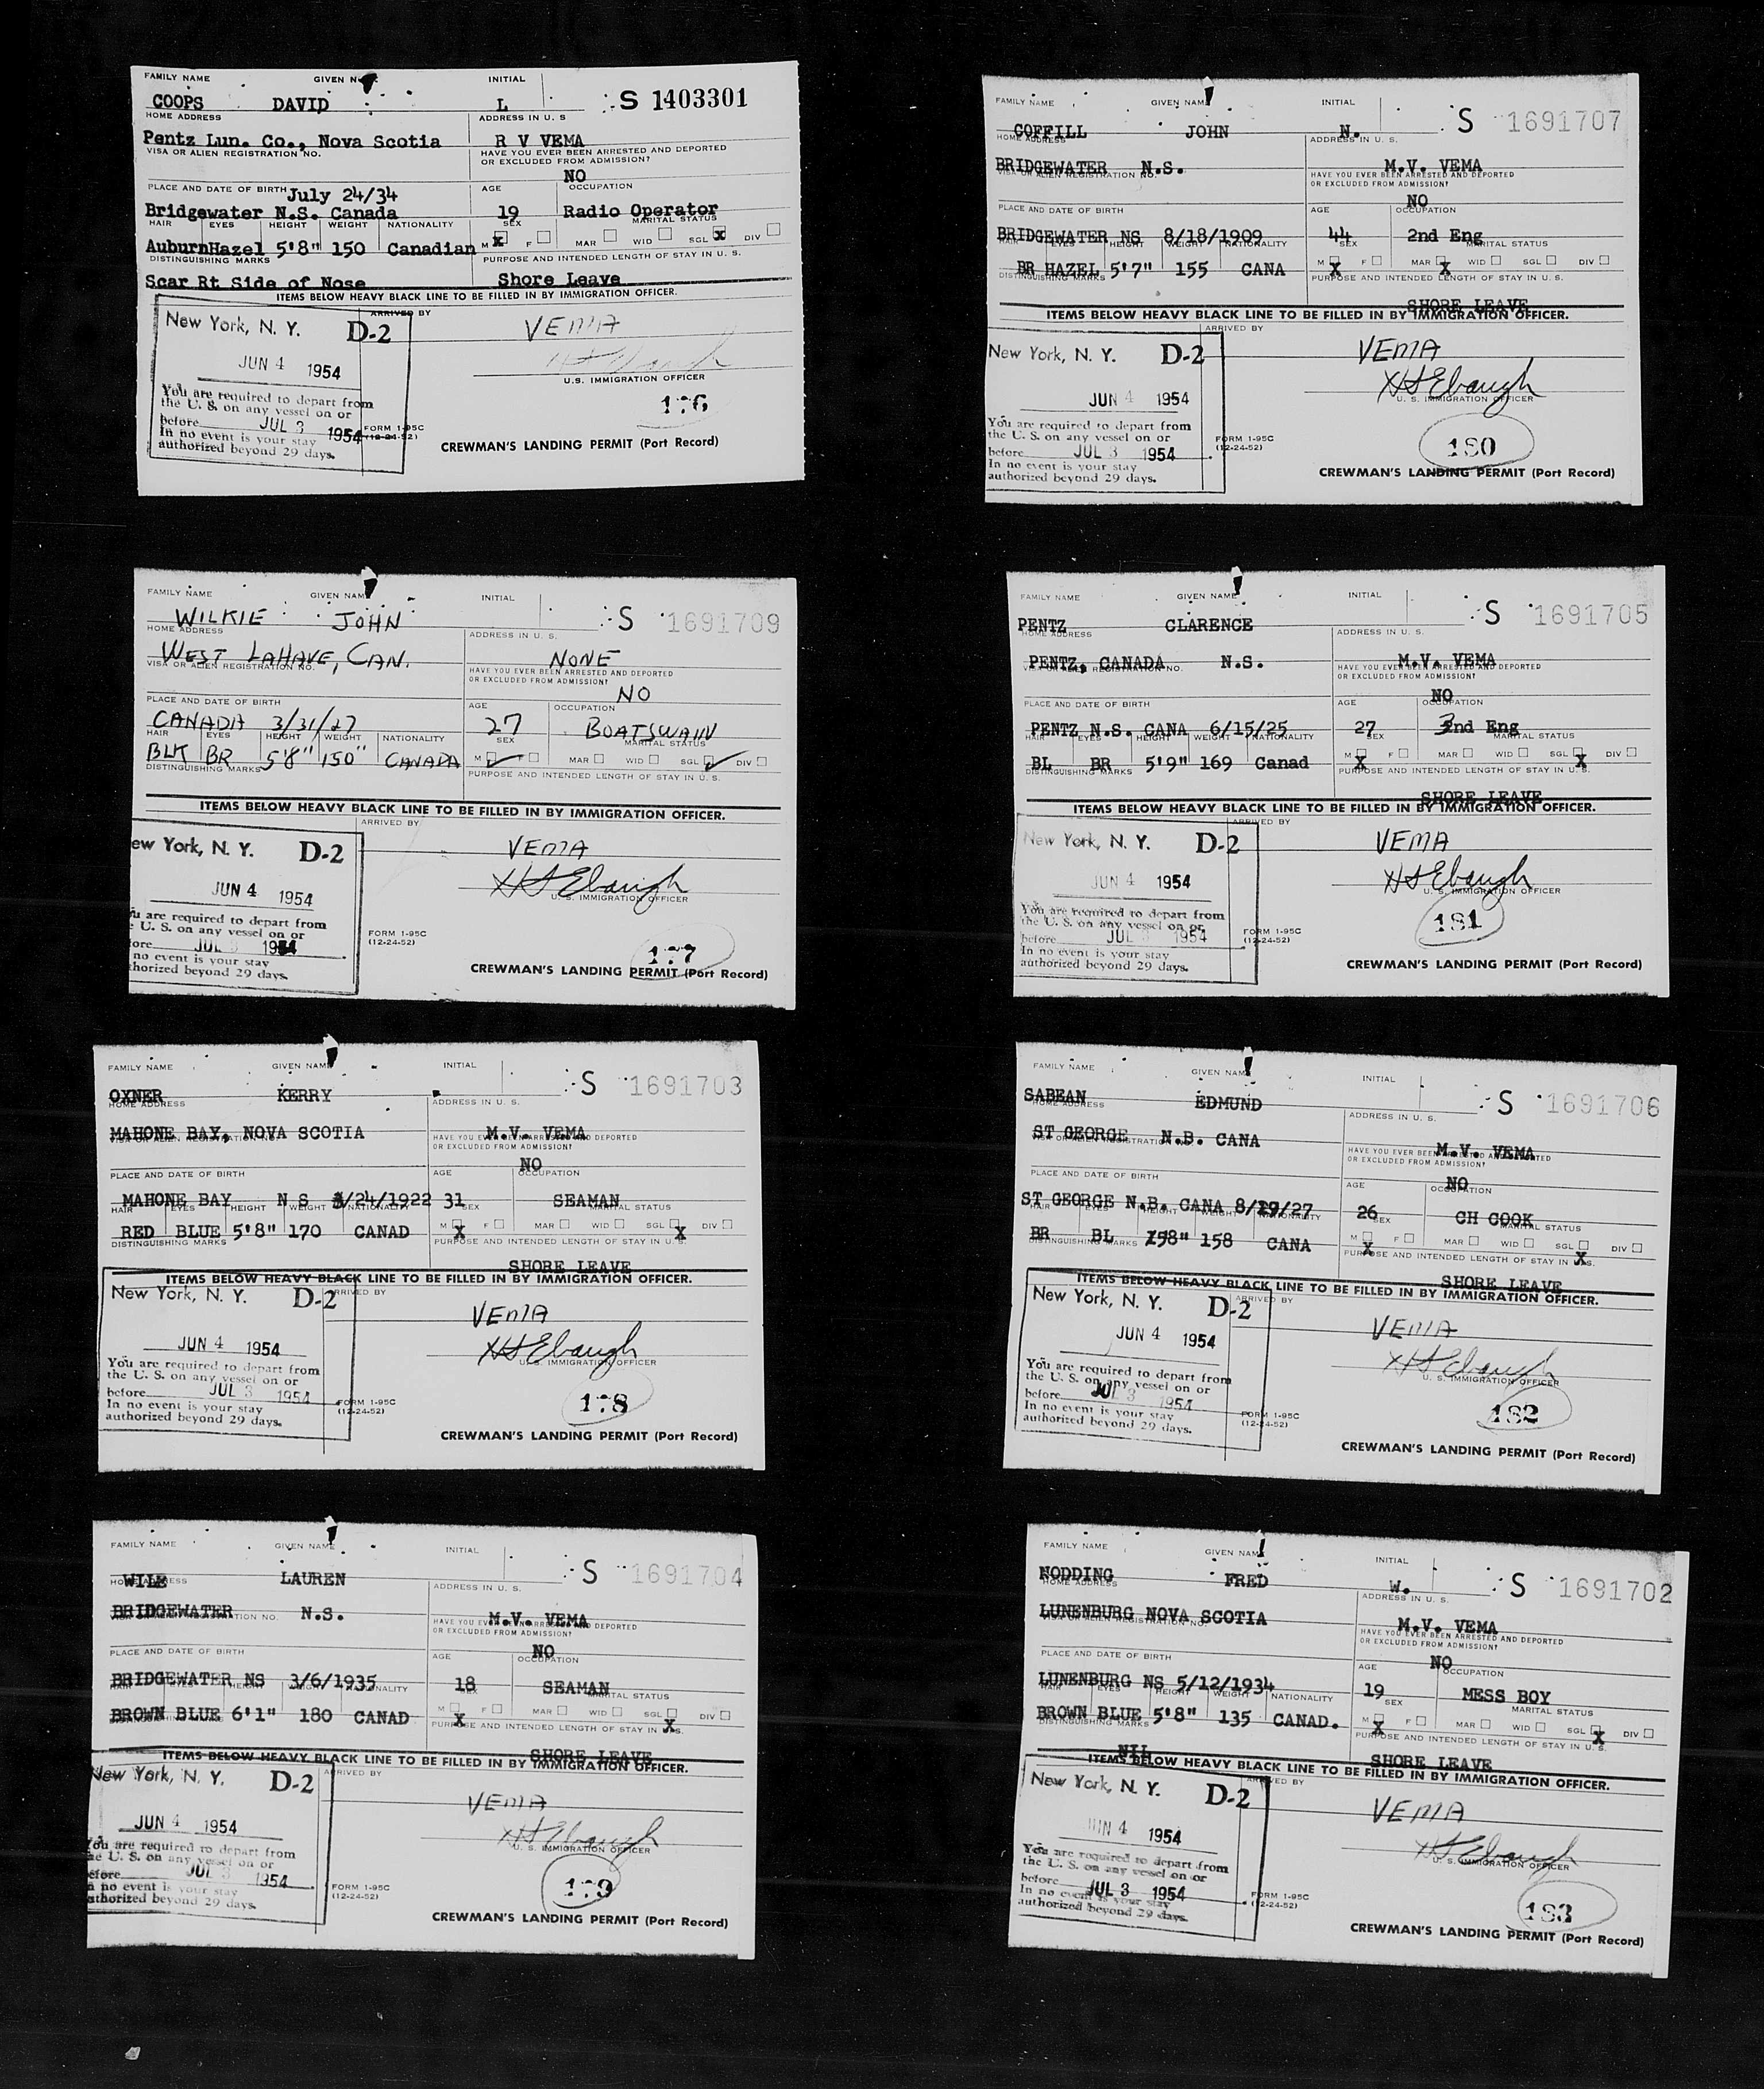 FAMILY NAME GIVEN NAME INITIAL
COOPS DAVID L S 1403301
HOME ADDRESS ADDRESS IN U. S
Pentz Lun. Co., Nova Scotia R V VEMA
VISA OR ALIEN REGISTRATION NO. HAVE YOU EVER BEEN ARRESTED AND DEPORTED
OR EXCLUDED FROM ADMISSION?
NO
PLACE AND DATE OF BIRTH July 24/34 AGE OCCUPATION
Bridgewater N.S. Canada 19 Radio Operator
HAIR EYES HEIGHT WEIGHT NATIONALITY SEX MARITAL STATUS
Auburn Hazel 5'8" 150 Canadian M X F MAR WID SGL X DIV
DISTINGUISHING MARKS PURPOSE AND INTENDED LENGTH OF STAY IN U. S.
Scar Rt Side of Nose Shore Leave
ITEMS BELOW HEAVY BLACK LINE TO BE FILLED IN BY IMMIGRATION OFFICER.
ARRIVED BY
New York, N. Y. D-2 VEMA
JUN 4 1954
U.S. IMMIGRATION OFFICER
You are required to depart from
the U. S. on any vessel on or
before JUL 3 1954
In no event is your stay
authorized beyond 29 days.
176
FORM 1-95C
(12-24-52)
CREWMAN'S LANDING PERMIT (Port Record)
FAMILY NAME GIVEN NAME INITIAL
COFFILL JOHN N. S 1691707
HOME ADDRESS ADDRESS IN U. S.
BRIDGEWATER N.S. M.V. VEMA
VISA OR ALIEN REGISTRATION NO. HAVE YOU EVER BEEN ARRESTED AND DEPORTED
OR EXCLUDED FROM ADMISSION?
NO
PLACE AND DATE OF BIRTH AGE OCCUPATION
BRIDGEWATER NS 8/18/1909 44 2nd Eng
HAIR EYES HEIGHT WEIGHT NATIONALITY SEX MARITAL STATUS
BR HAZEL 5'7" 155 CANA M X F MAR X WID SGL DIV
DISTINGUISHING MARKS PURPOSE AND INTENDED LENGTH OF STAY IN U. S.
SHORE LEAVE
ITEMS BELOW HEAVY BLACK LINE TO BE FILLED IN BY IMMIGRATION OFFICER.
ARRIVED BY
New York, N. Y. D-2 VEMA
HS Ebaugh
JUN 4 1954
U. S. IMMIGRATION OFFICER
You are required to depart from
the U. S. on any vessel on or
before JUL 3 1954
In no event is your stay
authorized beyond 29 days.
FORM 1-95C
(12-24-52)
180
CREWMAN'S LANDING PERMIT (Port Record)
FAMILY NAME GIVEN NAME INITIAL
WILKIE JOHN S 1691709
HOME ADDRESS ADDRESS IN U. S.
WEST LAHAVE, CAN. NONE
VISA OR ALIEN REGISTRATION NO. HAVE YOU EVER BEEN ARRESTED AND DEPORTED
OR EXCLUDED FROM ADMISSION?
NO
PLACE AND DATE OF BIRTH AGE OCCUPATION
CANADA 3/31/27 27 BOATSWAIN
HAIR EYES HEIGHT WEIGHT NATIONALITY SEX MARITAL STATUS
BLK BR 5'8" 150" CANADA M F MAR WID SGL DIV
DISTINGUISHING MARKS PURPOSE AND INTENDED LENGTH OF STAY IN U. S.
ITEMS BELOW HEAVY BLACK LINE TO BE FILLED IN BY IMMIGRATION OFFICER.
ARRIVED BY
ew York, N. Y. D-2 VEMA
HS Ebaugh
JUN 4 1954
U. S. IMMIGRATION OFFICER
u are required to depart from
e U. S. on any vessel on or
ore JUL 3 1954
no event is your stay
thorized beyond 29 days.
FORM 1-95C
(12-24-52)
177
CREWMAN'S LANDING PERMIT (Port Record)
FAMILY NAME GIVEN NAME INITIAL
PENTZ CLARENCE S 1691705
HOME ADDRESS ADDRESS IN U. S.
PENTZ, CANADA N.S. M.V. VEMA
VISA OR ALIEN REGISTRATION NO. HAVE YOU EVER BEEN ARRESTED AND DEPORTED
OR EXCLUDED FROM ADMISSION?
NO
PLACE AND DATE OF BIRTH AGE OCCUPATION
PENTZ N.S. CANA 6/15/25 27 3nd Eng
HAIR EYES HEIGHT WEIGHT NATIONALITY SEX MARITAL STATUS
BL BR 5'9" 169 Canad M X F MAR WID SGL X DIV
DISTINGUISHING MARKS PURPOSE AND INTENDED LENGTH OF STAY IN U. S.
SHORE LEAVE
ITEMS BELOW HEAVY BLACK LINE TO BE FILLED IN BY IMMIGRATION OFFICER.
ARRIVED BY
New York, N. Y. D-2 VEMA
HS Ebaugh
JUN 4 1954
U. S. IMMIGRATION OFFICER
You are required to depart from
the U. S. on any vessel on or
before JUL 3 1954
In no event is your stay
authorized beyond 29 days.
FORM 1-95C
(12-24-52)
181
CREWMAN'S LANDING PERMIT (Port Record)
FAMILY NAME GIVEN NAME INITIAL
OXNER KERRY S 1691703
HOME ADDRESS ADDRESS IN U. S.
MAHONE BAY, NOVA SCOTIA M.V. VEMA
VISA OR ALIEN REGISTRATION NO. HAVE YOU EVER BEEN ARRESTED AND DEPORTED
OR EXCLUDED FROM ADMISSION?
NO
PLACE AND DATE OF BIRTH AGE OCCUPATION
MAHONE BAY N S /24/1922 31 SEAMAN
HAIR EYES HEIGHT WEIGHT NATIONALITY SEX MARITAL STATUS
RED BLUE 5'8" 170 CANAD M X F MAR WID SGL X DIV
DISTINGUISHING MARKS PURPOSE AND INTENDED LENGTH OF STAY IN U. S.
SHORE LEAVE
ITEMS BELOW HEAVY BLACK LINE TO BE FILLED IN BY IMMIGRATION OFFICER.
ARRIVED BY
New York, N. Y. D-2 VEMA
HS Ebaugh
JUN 4 1954
U. S. IMMIGRATION OFFICER
You are required to depart from
the U. S. on any vessel on or
before JUL 3 1954
In no event is your stay
authorized beyond 29 days.
FORM 1-95C
(12-24-52)
178
CREWMAN'S LANDING PERMIT (Port Record)
FAMILY NAME GIVEN NAME INITIAL
SABEAN EDMUND S 1691706
HOME ADDRESS ADDRESS IN U. S.
ST GEORGE N.B. CANA M.V. VEMA
VISA OR ALIEN REGISTRATION NO. HAVE YOU EVER BEEN ARRESTED AND DEPORTED
OR EXCLUDED FROM ADMISSION?
NO
PLACE AND DATE OF BIRTH AGE OCCUPATION
ST GEORGE N.B. CANA 8/ /27 26 CH COOK
HAIR EYES HEIGHT WEIGHT NATIONALITY SEX MARITAL STATUS
BR BL 5'8" 158 CANA M X F MAR WID SGL X DIV
DISTINGUISHING MARKS PURPOSE AND INTENDED LENGTH OF STAY IN U. S.
SHORE LEAVE
ITEMS BELOW HEAVY BLACK LINE TO BE FILLED IN BY IMMIGRATION OFFICER.
ARRIVED BY
New York, N. Y. D-2 VEMA
HS Ebaugh
JUN 4 1954
U. S. IMMIGRATION OFFICER
You are required to depart from
the U. S. on any vessel on or
before JUL 3 1954
In no event is your stay
authorized beyond 29 days.
FORM 1-95C
(12-24-52)
182
CREWMAN'S LANDING PERMIT (Port Record)
FAMILY NAME GIVEN NAME INITIAL
WILE LAUREN S 1691704
HOME ADDRESS ADDRESS IN U. S.
BRIDGEWATER N.S. M.V. VEMA
VISA OR ALIEN REGISTRATION NO. HAVE YOU EVER BEEN ARRESTED AND DEPORTED
OR EXCLUDED FROM ADMISSION?
NO
PLACE AND DATE OF BIRTH AGE OCCUPATION
BRIDGEWATER NS 3/6/1935 18 SEAMAN
HAIR EYES HEIGHT WEIGHT NATIONALITY SEX MARITAL STATUS
BROWN BLUE 6'1" 180 CANAD M X F MAR WID SGL X DIV
PURPOSE AND INTENDED LENGTH OF STAY IN U. S.
SHORE LEAVE
ITEMS BELOW HEAVY BLACK LINE TO BE FILLED IN BY IMMIGRATION OFFICER.
ARRIVED BY
New York, N. Y. D-2 VEMA
HS Ebaugh
JUN 4 1954
U. S. IMMIGRATION OFFICER
You are required to depart from
he U. S. on any vessel on or
efore JUL 3 1954
n no event is your stay
uthorized beyond 29 days.
FORM 1-95C
(12-24-52)
179
CREWMAN'S LANDING PERMIT (Port Record)
FAMILY NAME GIVEN NAME INITIAL
NODDING FRED W. S 1691702
HOME ADDRESS ADDRESS IN U. S.
LUNENBURG NOVA SCOTIA M.V. VEMA
VISA OR ALIEN REGISTRATION NO. HAVE YOU EVER BEEN ARRESTED AND DEPORTED
OR EXCLUDED FROM ADMISSION?
NO
PLACE AND DATE OF BIRTH AGE OCCUPATION
LUNENBURG NS 5/12/1934 19 MESS BOY
HAIR EYES HEIGHT WEIGHT NATIONALITY SEX MARITAL STATUS
BROWN BLUE 5'8" 135 CANAD. M X F MAR WID SGL X DIV
DISTINGUISHING MARKS PURPOSE AND INTENDED LENGTH OF STAY IN U. S.
NIL SHORE LEAVE
ITEMS BELOW HEAVY BLACK LINE TO BE FILLED IN BY IMMIGRATION OFFICER.
ARRIVED BY
New York, N. Y. D-2 VEMA
HS Ebaugh
JUN 4 1954
U. S. IMMIGRATION OFFICER
You are required to depart from
the U. S. on any vessel on or
before JUL 3 1954
In no event is your stay
authorized beyond 29 days.
FORM 1-95C
(12-24-52)
183
CREWMAN'S LANDING PERMIT (Port Record)